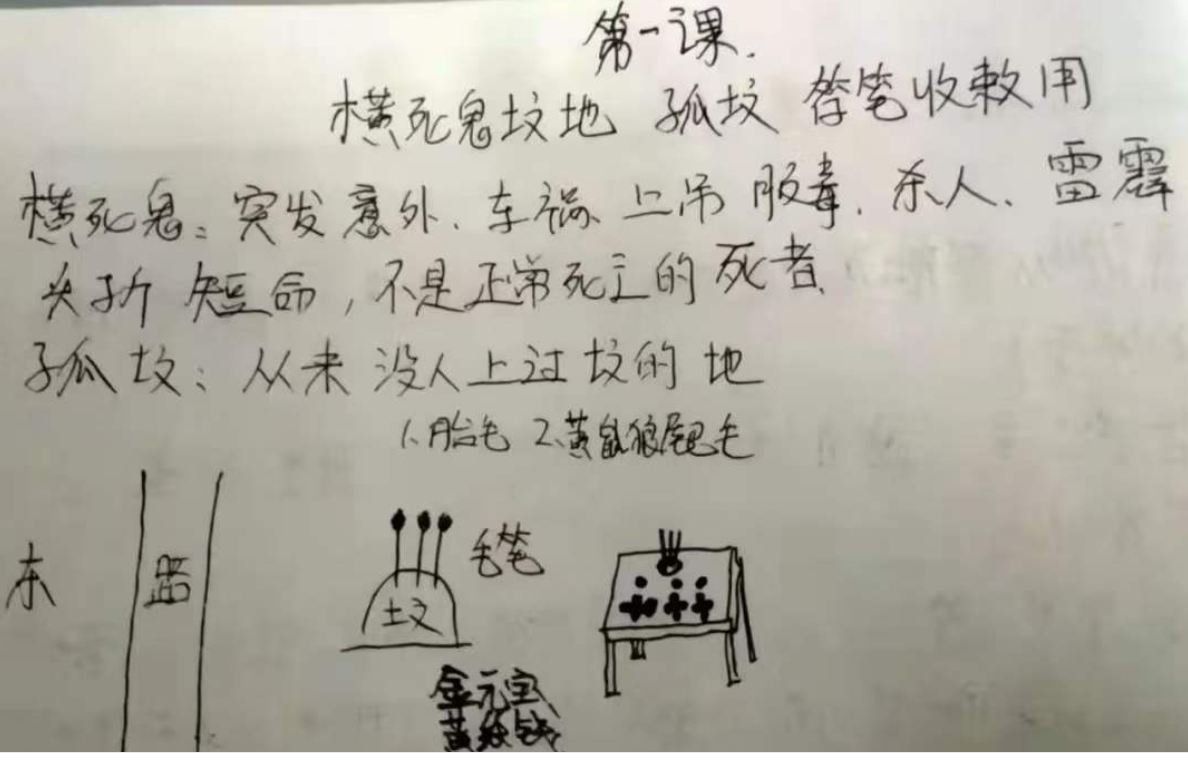 第一课.
横死鬼坟地 孤坟 笔收敕用
横死鬼: 突发意外. 车祸 上吊 服毒. 杀人. 雷霹
夭折 短命, 不是正常死亡的死者.
孤坟: 从来没人上过坟的地
1.胎毛 2.黄鼠狼尾巴毛
东 路 坟 毛笔
金元宝
黄纸钱